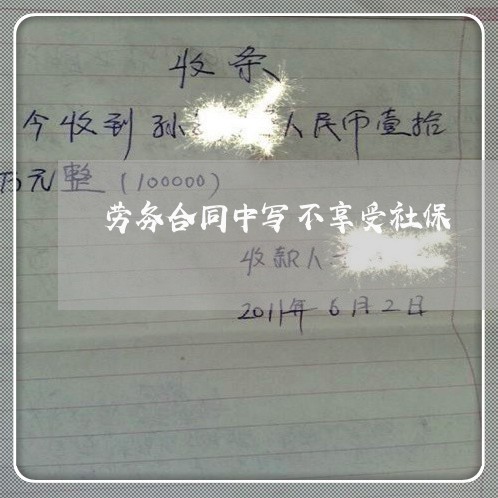 收条
今收到孙 人民币壹拾
万元整（100000）
劳务合同中写不享受社保
收款人
2011年6月2日